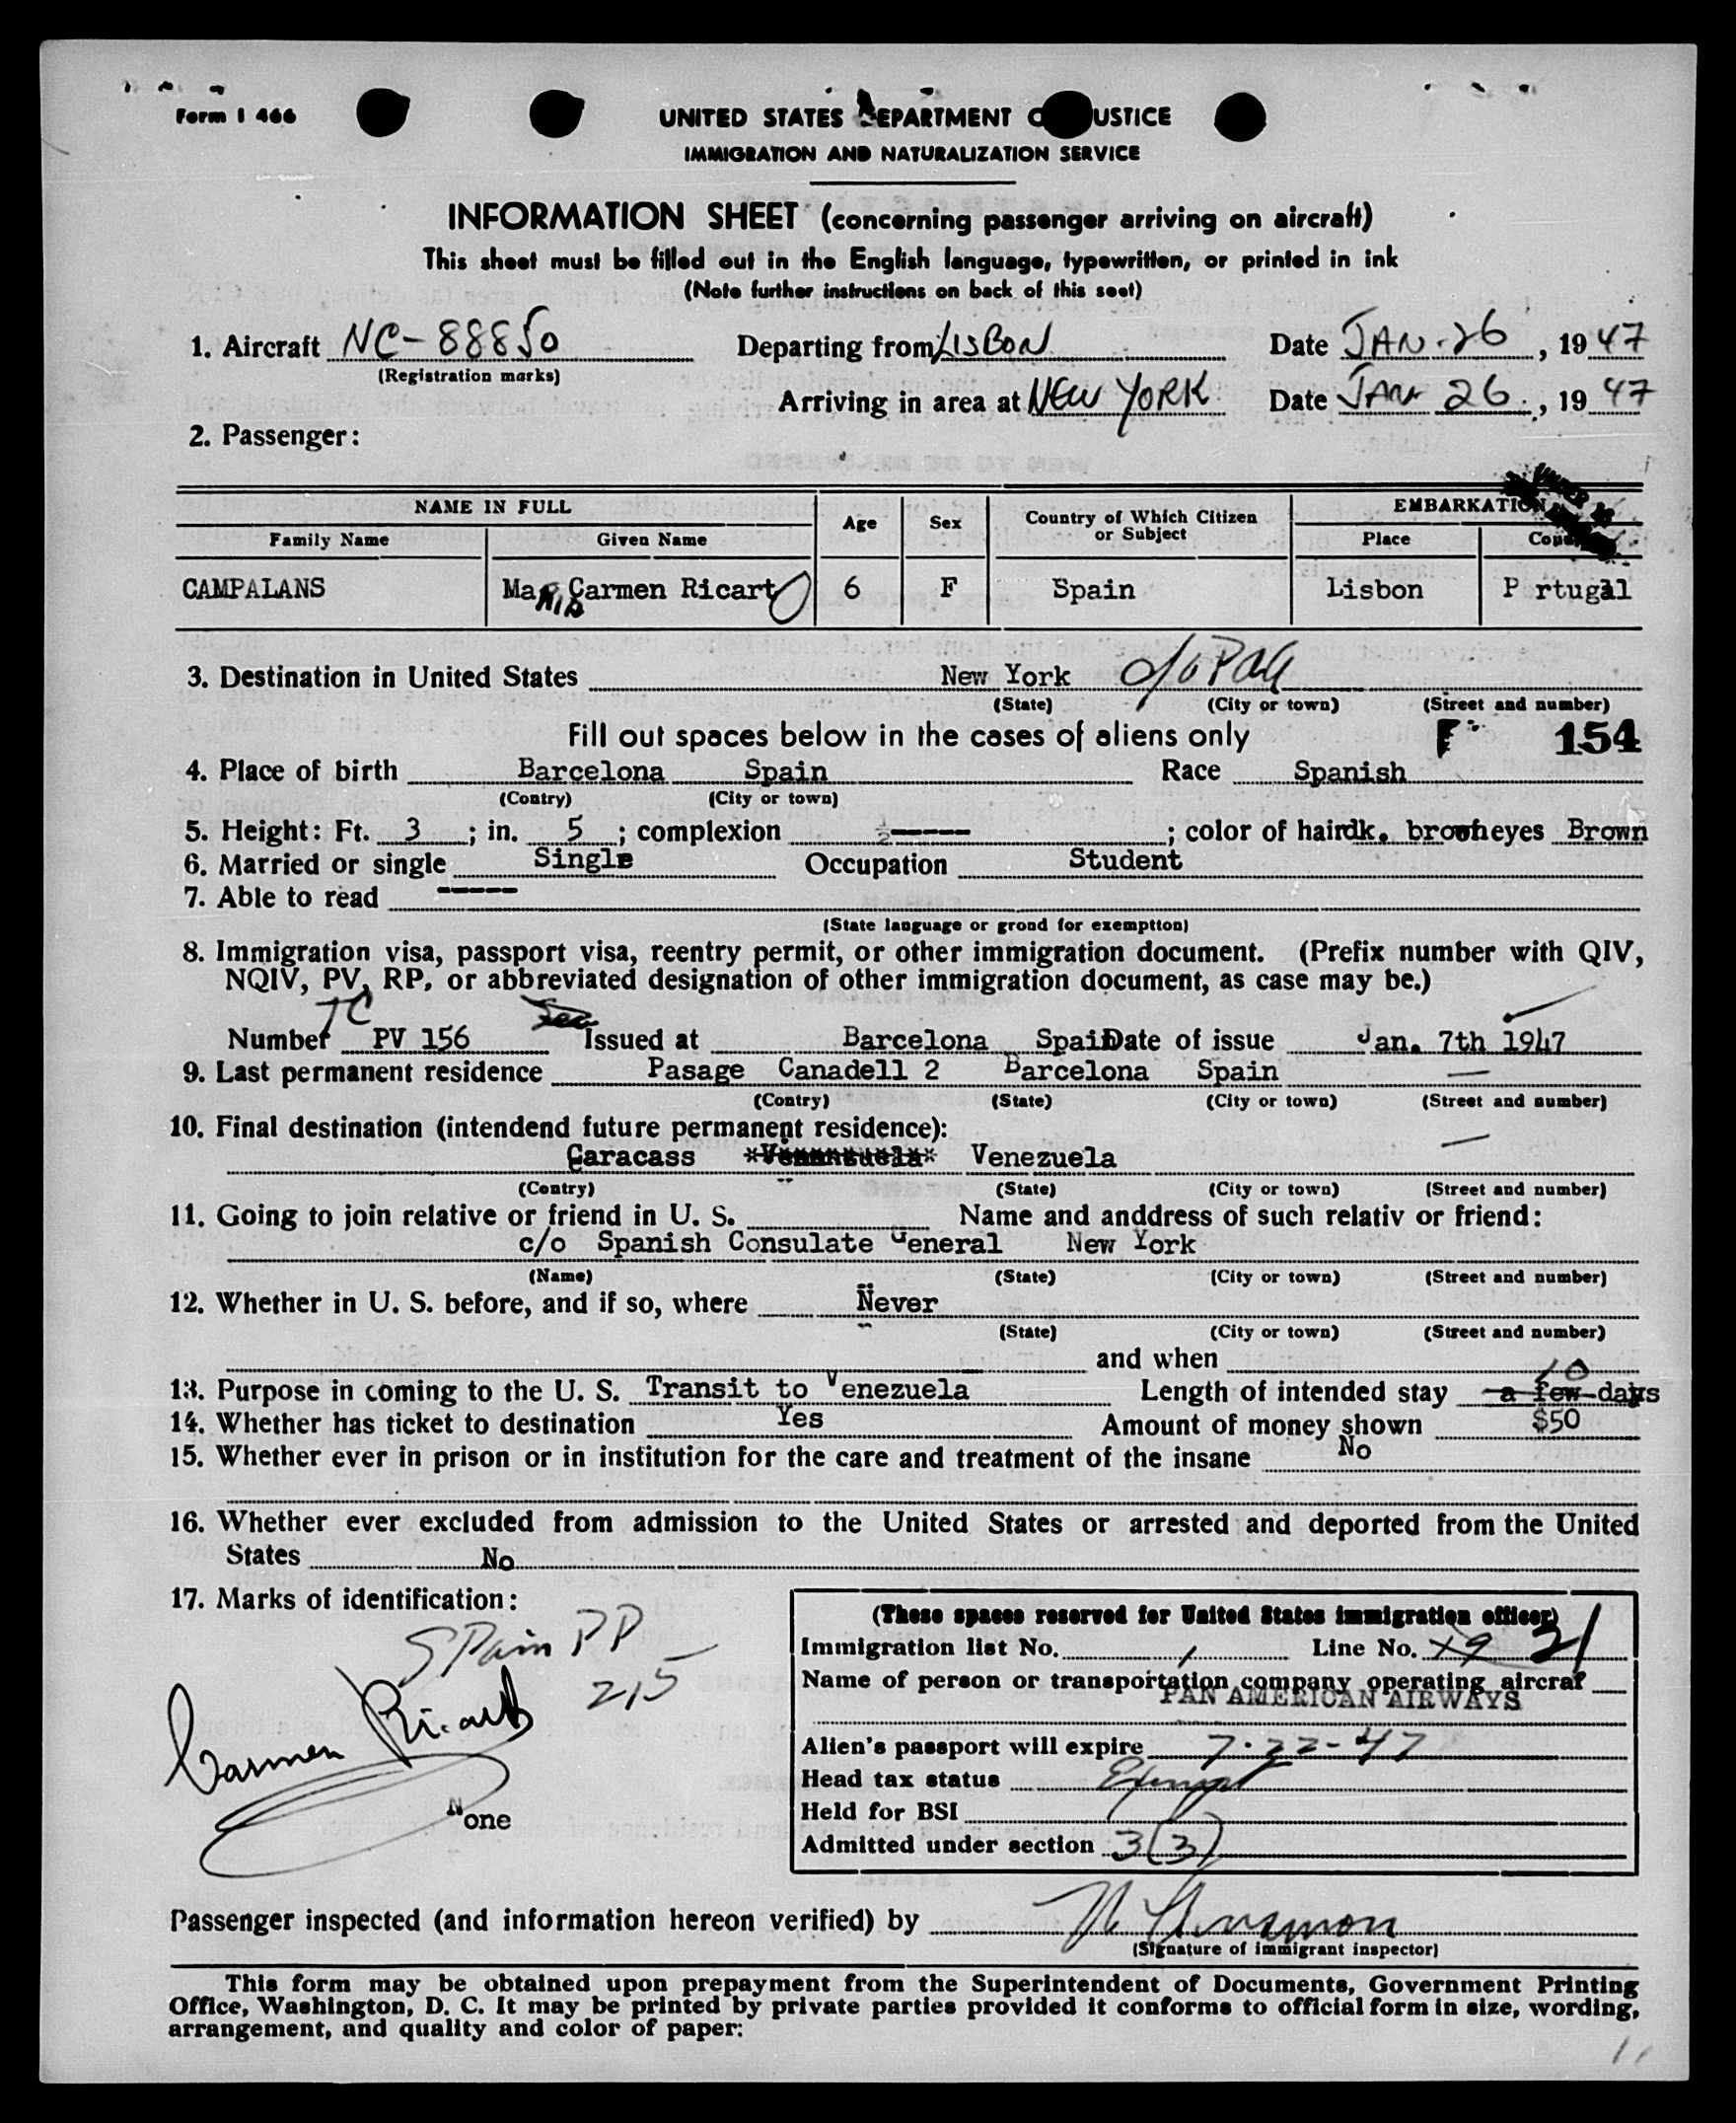 Form I 466
UNITED STATES DEPARTMENT O USTICE
IMMIGRATION AND NATURALIZATION SERVICE
INFORMATION SHEET (concerning passenger arriving on aircraft)
This sheet must be filled out in the English language, typewritten, or printed in ink
(Note further instructions on back of this seet)
1. Aircraft NC-88850 Departing from LISBON Date JAN. 26, 1947
(Registration marks)
Arriving in area at NEW YORK Date JAN 26, 1947
2. Passenger:
NAME IN FULL Age Sex Country of Which Citizen or Subject EMBARKATION
Family Name Given Name Place
UNDER
CAMPALANS Ma Carmen Ricart 6 F Spain Lisbon P rtugal
RIA
3. Destination in United States New York c/o PAA
(State) (City or town) (Street and number)
Fill out spaces below in the cases of aliens only F 154
4. Place of birth Barcelona Spain Race Spanish
(Contry) (City or town)
5. Height: Ft. 3 ; in. 5 ; complexion ----- ; color of hair dk. brown eyes Brown
6. Married or single Single Occupation Student
7. Able to read -----
(State language or grond for exemption)
8. Immigration visa, passport visa, reentry permit, or other immigration document. (Prefix number with QIV,
NQIV, PV, RP, or abbreviated designation of other immigration document, as case may be.)
TC
Number PV 156 Issued at Barcelona Spain Date of issue Jan. 7th 1947
9. Last permanent residence Pasage Canadell 2 Barcelona Spain
(Contry) (State) (City or town) (Street and number)
10. Final destination (intendend future permanent residence):
Caracass *Venenzuela* Venezuela
(Contry) (State) (City or town) (Street and number)
11. Going to join relative or friend in U. S. Name and anddress of such relativ or friend:
c/o Spanish Consulate General New York
(Name) (State) (City or town) (Street and number)
12. Whether in U. S. before, and if so, where Never
(State) (City or town) (Street and number)
and when
10
13. Purpose in coming to the U. S. Transit to Venezuela Length of intended stay a few days
14. Whether has ticket to destination Yes Amount of money shown $50
15. Whether ever in prison or in institution for the care and treatment of the insane No
16. Whether ever excluded from admission to the United States or arrested and deported from the United
States No
17. Marks of identification:
Spain PP
215
Carmen Ricart
None
(These spaces reserved for United States immigration officer)
Immigration list No. 1 Line No. 21
Name of person or transportation company operating aircraf
PAN AMERICAN AIRWAYS
Alien's passport will expire 7-22-47
Head tax status Exempt
Held for BSI
Admitted under section 3(3)
Passenger inspected (and information hereon verified) by
(Signature of immigrant inspector)
This form may be obtained upon prepayment from the Superintendent of Documents, Government Printing
Office, Washington, D. C. It may be printed by private parties provided it conforms to official form in size, wording,
arrangement, and quality and color of paper:
11